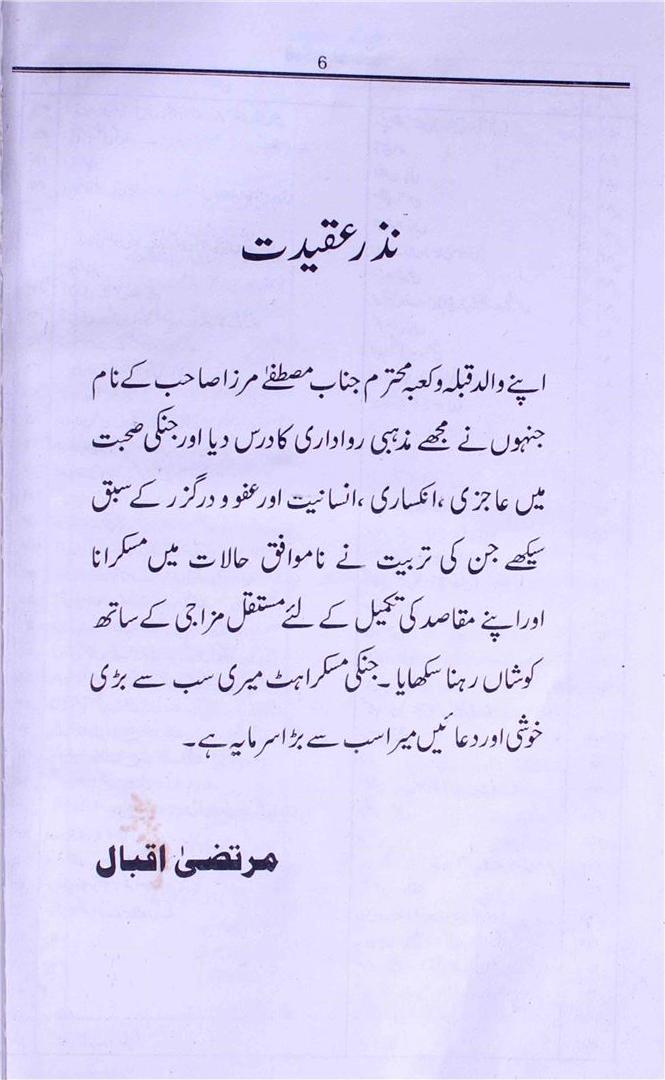 6
نذر عقیدت
اپنے والد قبلہ و کعبہ محترم جناب مصطفےٰ مرزا صاحب کے نام
جنہوں نے مجھے مذہبی رواداری کا درس دیا اور جنکی صحبت
میں عاجزی، انکساری، انسانیت اور عفو و درگزر کے سبق
سیکھے جن کی تربیت نے ناموافق حالات میں مسکرانا
اور اپنے مقاصد کی تکمیل کے لئے مستقل مزاجی کے ساتھ
کوشاں رہنا سکھایا۔ جنکی مسکراہٹ میری سب سے بڑی
خوشی اور دعائیں میرا سب سے بڑا سرمایہ ہے۔
مرتضیٰ اقبال